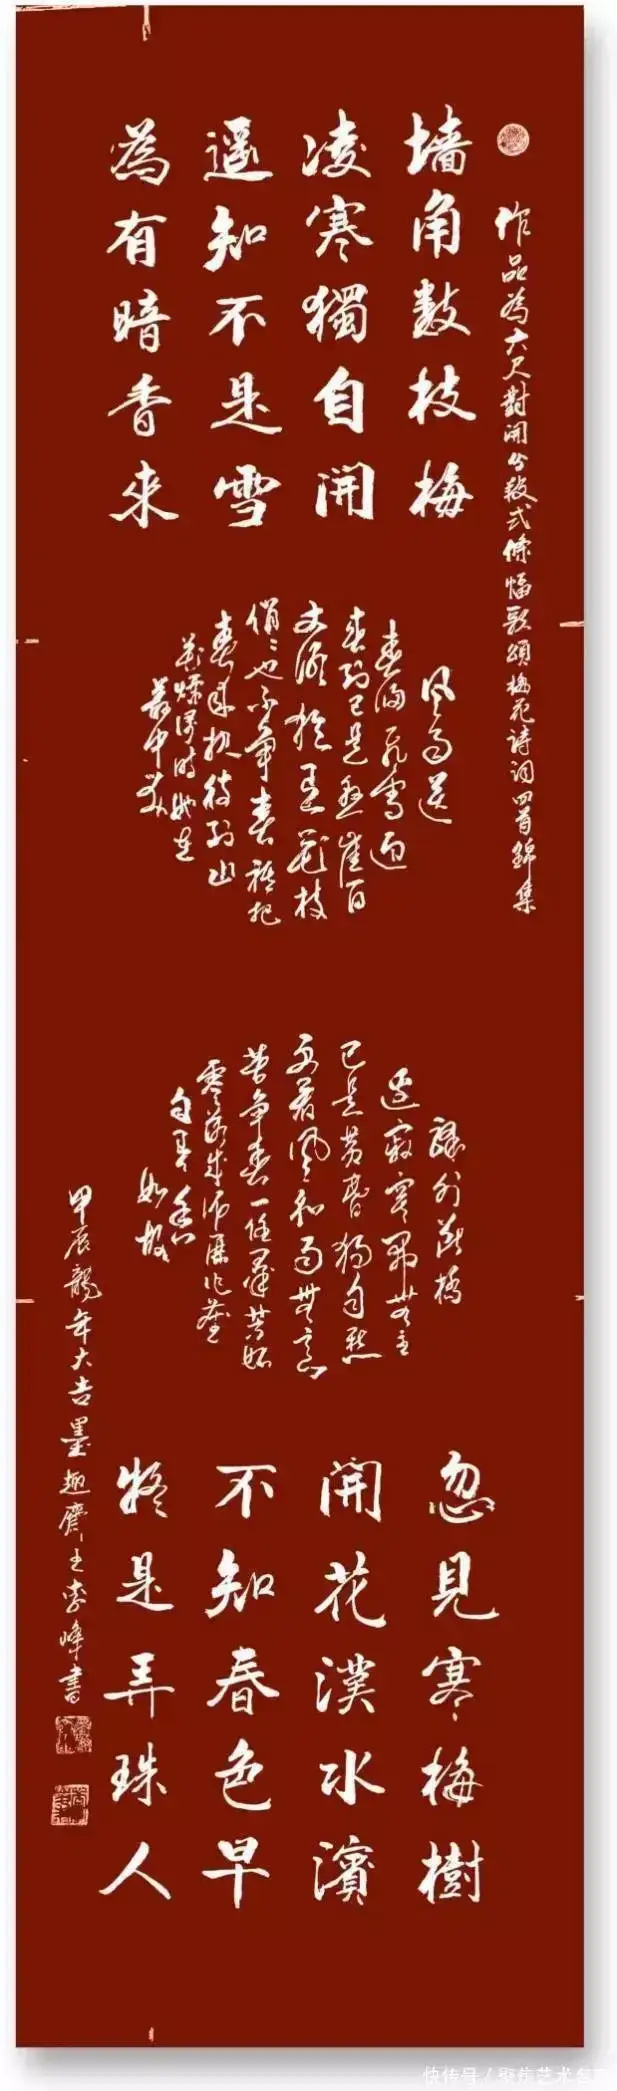 作品為六尺對開分段式條幅歌頌梅花詩詞四首錦集
墙角數枝梅
凌寒獨自開
遥知不是雪
為有暗香來
风雨送
春歸飛雪迎
春到已是懸崖百
丈冰猶有花枝
俏〻也不爭春祇把
春來報待到山
花爛漫時她在
叢中笑
驛外斷橋
邊寂寞開無主
已是黄昏獨自愁
更著風和雨無意
苦爭春一任群芳妒
零落成泥碾作塵
只有香
如故
忽見寒梅樹
開花漢水濱
不知春色早
疑是弄珠人
甲辰龍年大吉墨趣齋主李峰書
快传号/聚焦艺术名